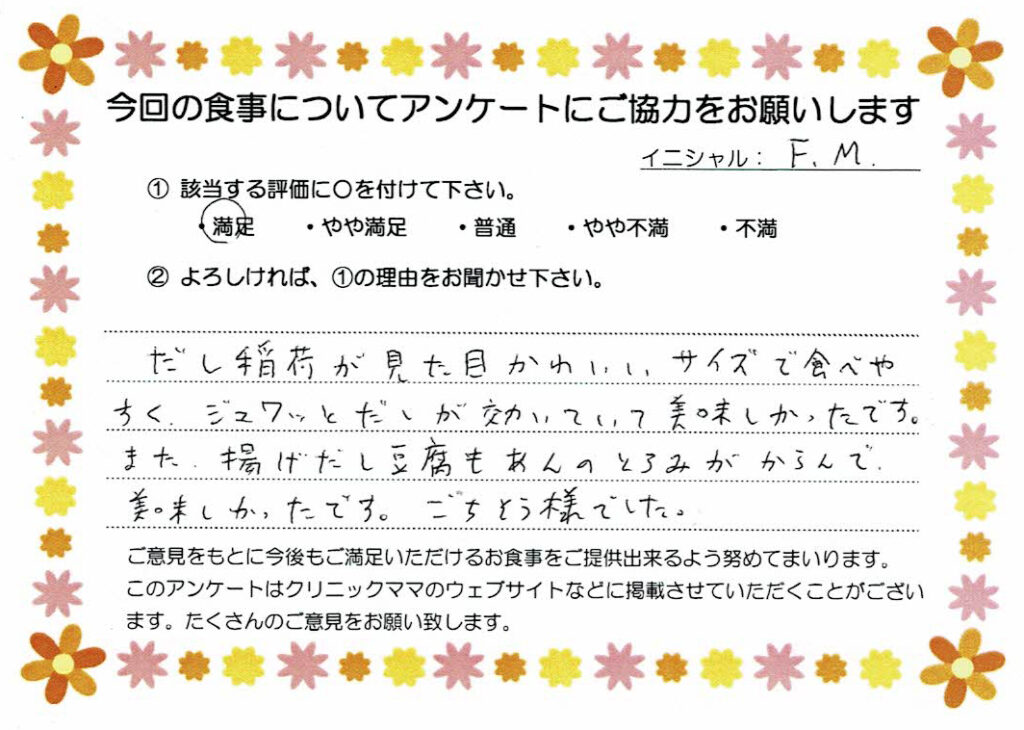 今回の食事についてアンケートにご協力をお願いします
イニシャル： F. M.
① 該当する評価に〇を付けて下さい。
・満足 ・やや満足 ・普通 ・やや不満 ・不満
② よろしければ、①の理由をお聞かせ下さい。
だし稲荷が見た目かわいいサイズで食べや
すく、ジュワッとだしが効いていて美味しかったです。
また、揚げだし豆腐もあんのとろみがからんで、
美味しかったです。ごちそう様でした。
ご意見をもとに今後もご満足いただけるお食事をご提供出来るよう努めてまいります。
このアンケートはクリニックママのウェブサイトなどに掲載させていただくことがござい
ます。たくさんのご意見をお願い致します。